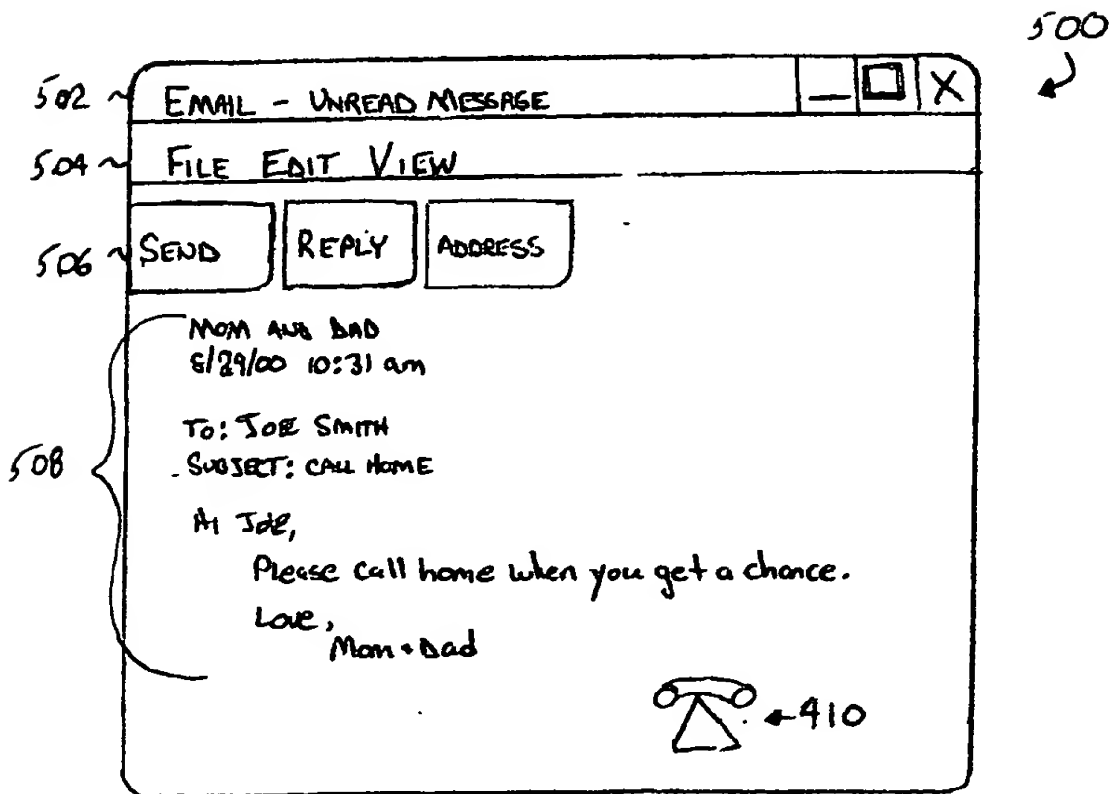 500
502 EMAIL - UNREAD MESSAGE _ X
504 FILE EDIT VIEW
506 SEND REPLY ADDRESS
MOM AND DAD
8/29/00 10:31 am
TO: JOE SMITH
508 SUBJECT: CALL HOME
Hi Joe,
Please call home when you get a chance.
Love,
Mom + Dad
410